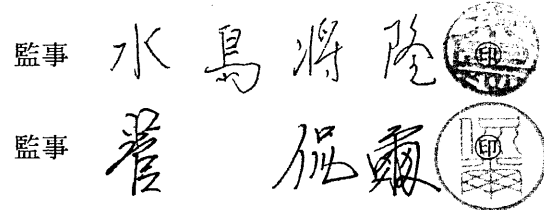 監事 水島将隆 ㊞
監事 菅 侃爾 ㊞